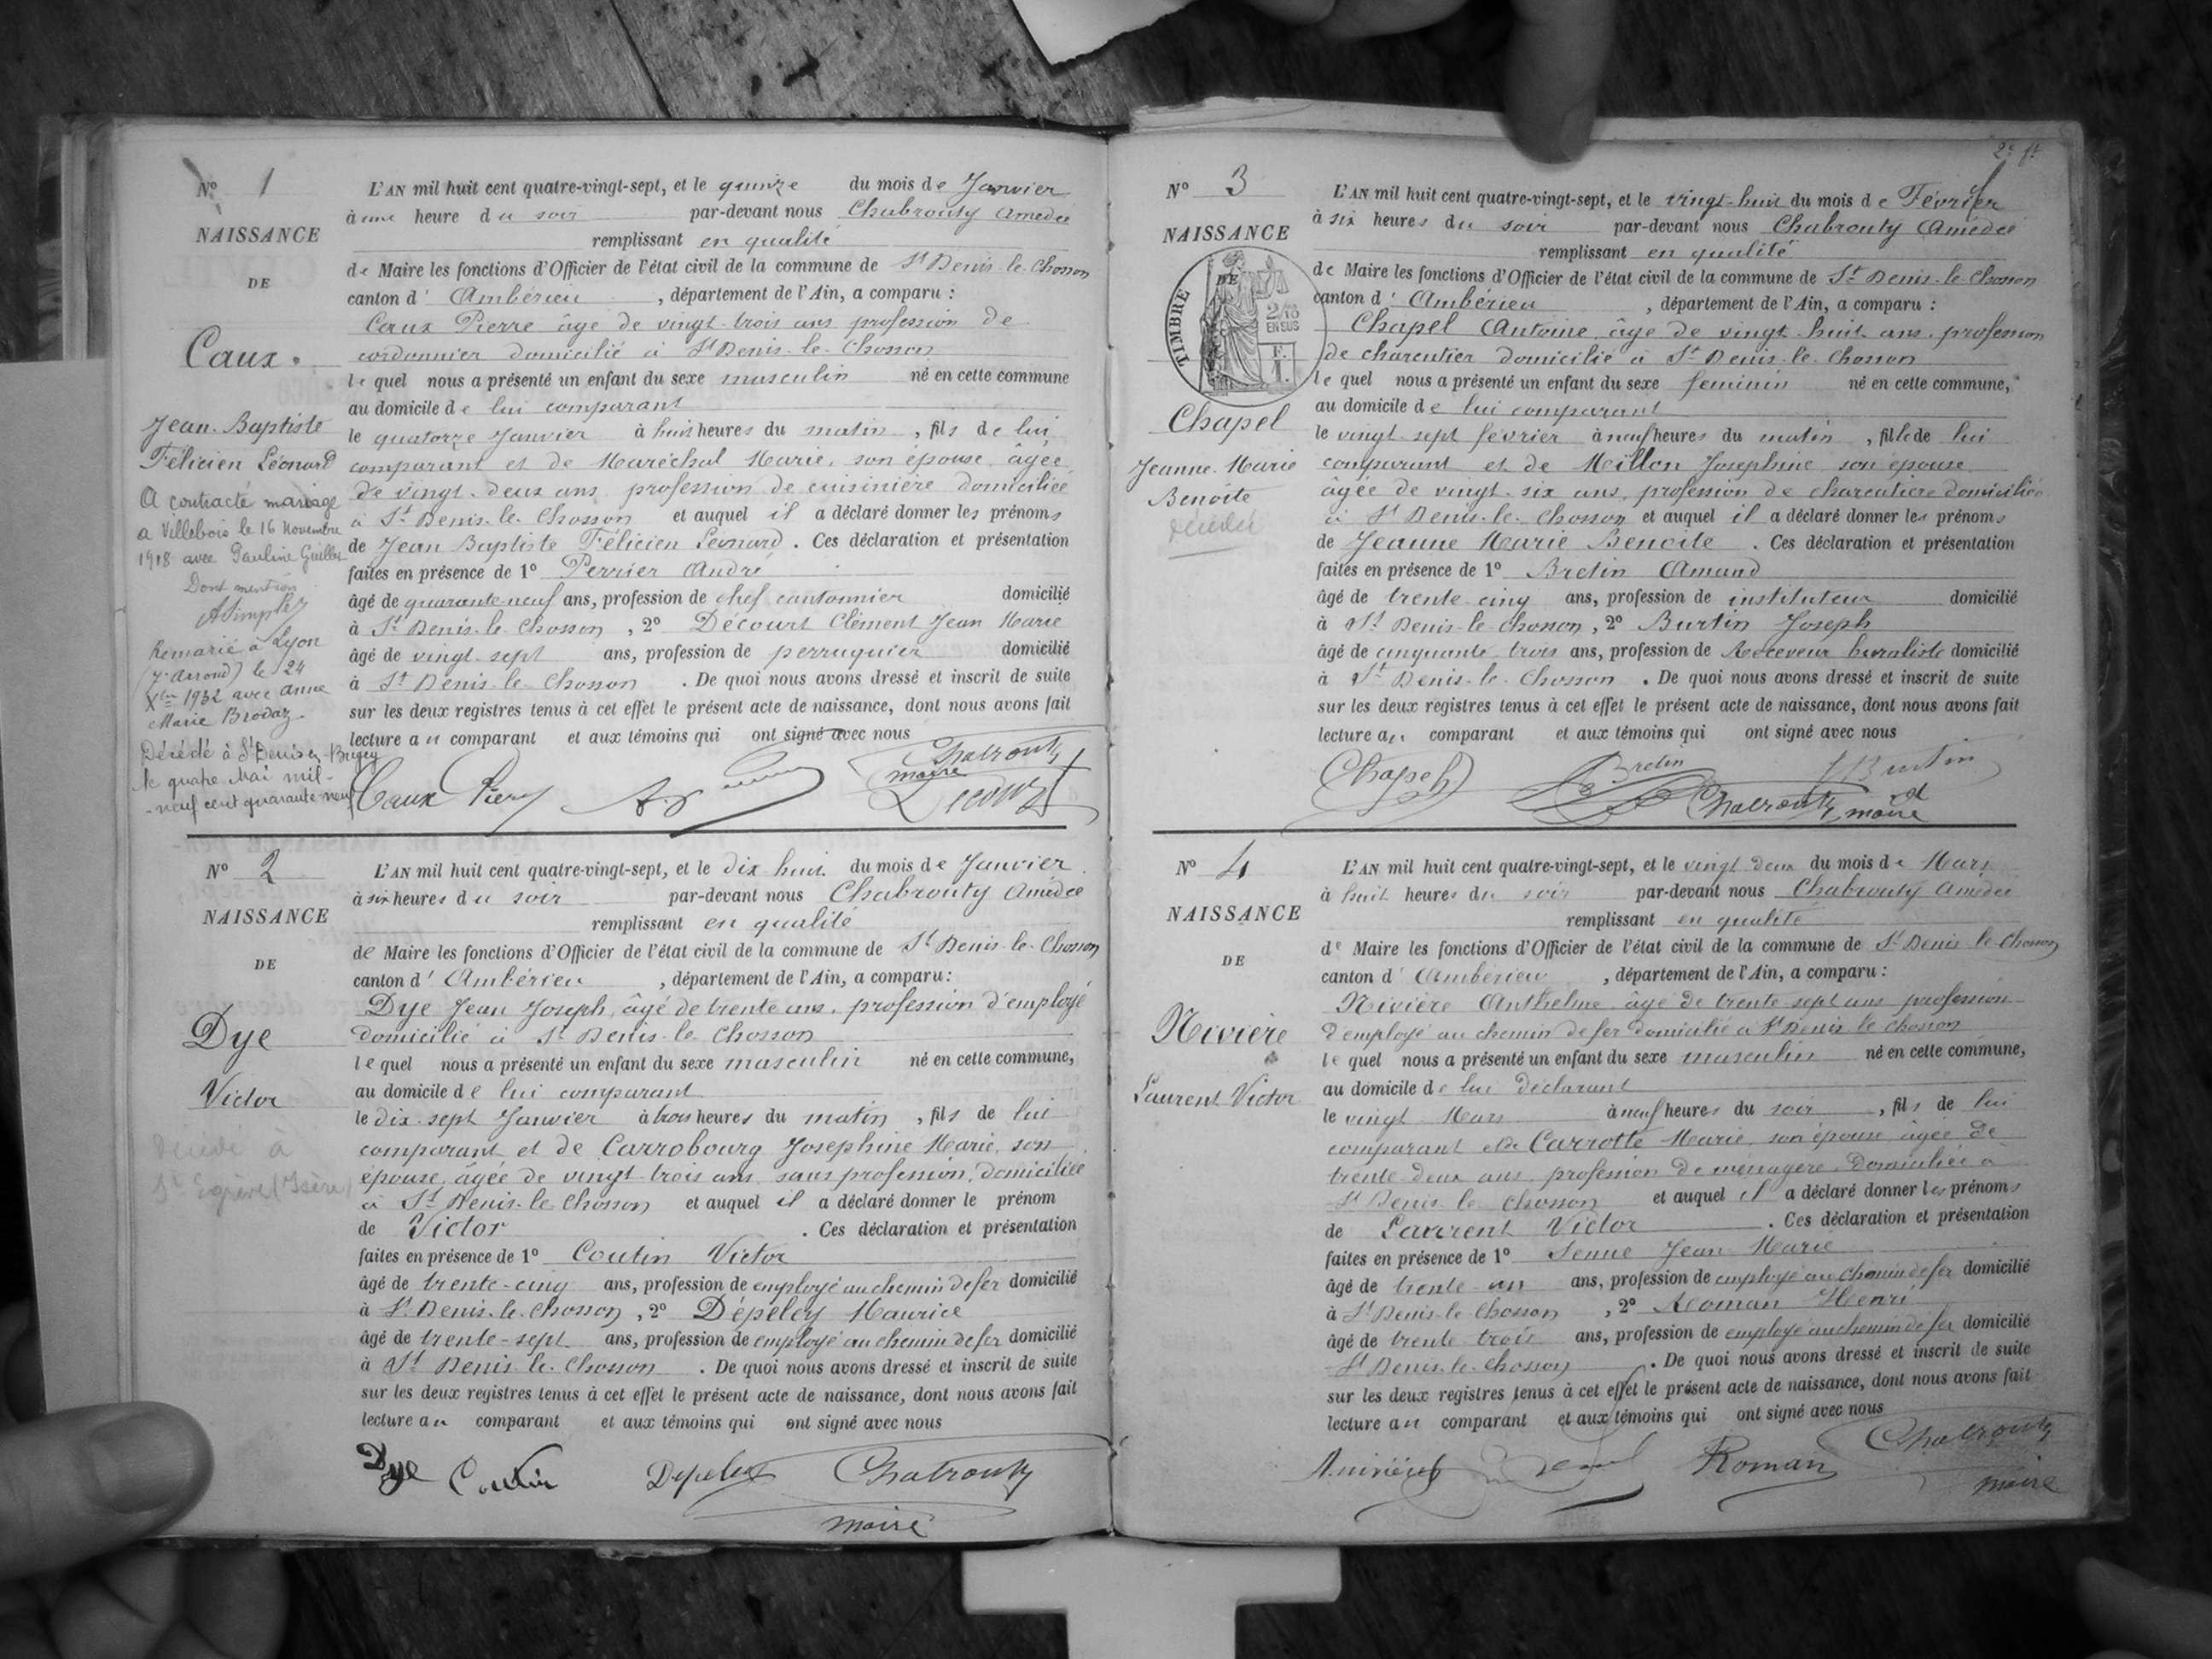 Nº 1
NAISSANCE
DE
Caux.
Jean Baptiste
Félicien Léonard
A contracté mariage
a Villebois le 16 Novembre
1918 avec Pauline
Dont mention
Remarié à Lyon
(7e arrond) le 24
Xbre 1932 avec Anne
Marie Brodaz.
Décédé à St Denis en Bugey
le quatre Mai mil-
-neuf cent quarante neuf
L'AN mil huit cent quatre-vingt-sept, et le quinze du mois de Janvier
à une heure du soir par-devant nous Chabrouty Amédée
remplissant en qualité
de Maire les fonctions d'Officier de l'état civil de la commune de St Denis-le-Chosson
canton d' Ambérieu , département de l'Ain, a comparu :
Caux Pierre âgé de vingt-trois ans profession de
cordonnier domicilié à St Denis-le-Chosson
lequel nous a présenté un enfant du sexe masculin né en cette commune
au domicile de lui comparant
le quatorze Janvier à huit heures du matin , fils de lui
comparant et de Maréchal Marie, son épouse âgée
de vingt-deux ans profession de cuisinière domiciliée
à St Denis-le-Chosson et auquel il a déclaré donner les prénoms
de Jean Baptiste Félicien Léonard . Ces déclaration et présentation
faites en présence de 1º Perrier André
âgé de quarante-neuf ans, profession de chef cantonnier domicilié
à St Denis-le-Chosson , 2º Décourt Clément Jean Marie
âgé de vingt-sept ans, profession de perruquier domicilié
à St Denis-le-Chosson . De quoi nous avons dressé et inscrit de suite
sur les deux registres tenus à cet effet le présent acte de naissance, dont nous avons fait
lecture au comparant et aux témoins qui ont signé avec nous
Chabrouty
maire
Caux Pierre
Décourt
Nº 2
NAISSANCE
DE
Dye
Victor
Décédé à
St Egrève (Isère)
L'AN mil huit cent quatre-vingt-sept, et le dix huit du mois de Janvier
à six heures du soir par-devant nous Chabrouty Amédée
remplissant en qualité
de Maire les fonctions d'Officier de l'état civil de la commune de St Denis-le-Chosson
canton d' Ambérieu , département de l'Ain, a comparu :
Dye Jean Joseph, âgé de trente ans, profession d'employé
domicilié à St Denis-le-Chosson
lequel nous a présenté un enfant du sexe masculin né en cette commune,
au domicile de lui comparant
le dix-sept Janvier à trois heures du matin , fils de lui
comparant et de Carrobourg Josephine Marie, son
épouse, âgée de vingt-trois ans, sans profession, domiciliée
à St Denis-le-Chosson et auquel il a déclaré donner le prénom
de Victor . Ces déclaration et présentation
faites en présence de 1º Coutin Victor
âgé de trente-cinq ans, profession de employé au chemin de fer domicilié
à St Denis-le-Chosson , 2º Dépeley Maurice
âgé de trente-sept ans, profession de employé au chemin de fer domicilié
à St Denis-le-Chosson . De quoi nous avons dressé et inscrit de suite
sur les deux registres tenus à cet effet le présent acte de naissance, dont nous avons fait
lecture au comparant et aux témoins qui ont signé avec nous
Dye Coutin Depeley Chabrouty
maire
2e ft
Nº 3
NAISSANCE
DE
TIMBRE
2/10
EN SUS
F.
1.
Chapel
Jeanne Marie
Benoite
décédée
L'AN mil huit cent quatre-vingt-sept, et le vingt-huit du mois de Février
à six heures du soir par-devant nous Chabrouty Amédée
remplissant en qualité
de Maire les fonctions d'Officier de l'état civil de la commune de St Denis-le-Chosson
canton d' Ambérieu , département de l'Ain, a comparu :
Chapel Antoine, âgé de vingt-huit ans, profession
de charcutier domicilié à St Denis-le-Chosson
lequel nous a présenté un enfant du sexe feminin né en cette commune,
au domicile de lui comparant
le vingt-sept février à neuf heures du matin , fille de lui
comparant et de Millon Josephine son épouse
âgée de vingt-six ans, profession de charcutière domiciliée
à St Denis-le-Chosson et auquel il a déclaré donner les prénoms
de Jeanne Marie Benoite . Ces déclaration et présentation
faites en présence de 1º Bretin Amand
âgé de trente-cinq ans, profession de instituteur domicilié
à St Denis-le-Chosson , 2º Burtin Joseph
âgé de cinquante-trois ans, profession de Receveur buraliste domicilié
à St Denis-le-Chosson . De quoi nous avons dressé et inscrit de suite
sur les deux registres tenus à cet effet le présent acte de naissance, dont nous avons fait
lecture au comparant et aux témoins qui ont signé avec nous
Chapel Bretin J Burtin
Chabrouty maire
Nº 4
NAISSANCE
DE
Nivière
Laurent Victor
L'AN mil huit cent quatre-vingt-sept, et le vingt deux du mois de Mars
à huit heures du soir par-devant nous Chabrouty Amédée
remplissant en qualité
de Maire les fonctions d'Officier de l'état civil de la commune de St Denis-le-Chosson
canton d' Ambérieu , département de l'Ain, a comparu :
Nivière Anthelme âgé de trente-sept ans profession
d'employé au chemin de fer domicilié à St Denis le Chosson
lequel nous a présenté un enfant du sexe masculin né en cette commune,
au domicile de lui déclarant
le vingt Mars à neuf heures du soir , fils de lui
comparant et de Carrotte Marie, son épouse âgée de
trente-deux ans, profession de ménagère domiciliée à
St Denis le Chosson et auquel il a déclaré donner les prénoms
de Laurent Victor . Ces déclaration et présentation
faites en présence de 1º Jean Marie
âgé de trente-un ans, profession de employé au chemin de fer domicilié
à St Denis-le-Chosson , 2º Roman Henri
âgé de trente trois ans, profession de employé au chemin de fer domicilié
St Denis-le-Chosson . De quoi nous avons dressé et inscrit de suite
sur les deux registres tenus à cet effet le présent acte de naissance, dont nous avons fait
lecture au comparant et aux témoins qui ont signé avec nous
Roman Chabrouty
maire